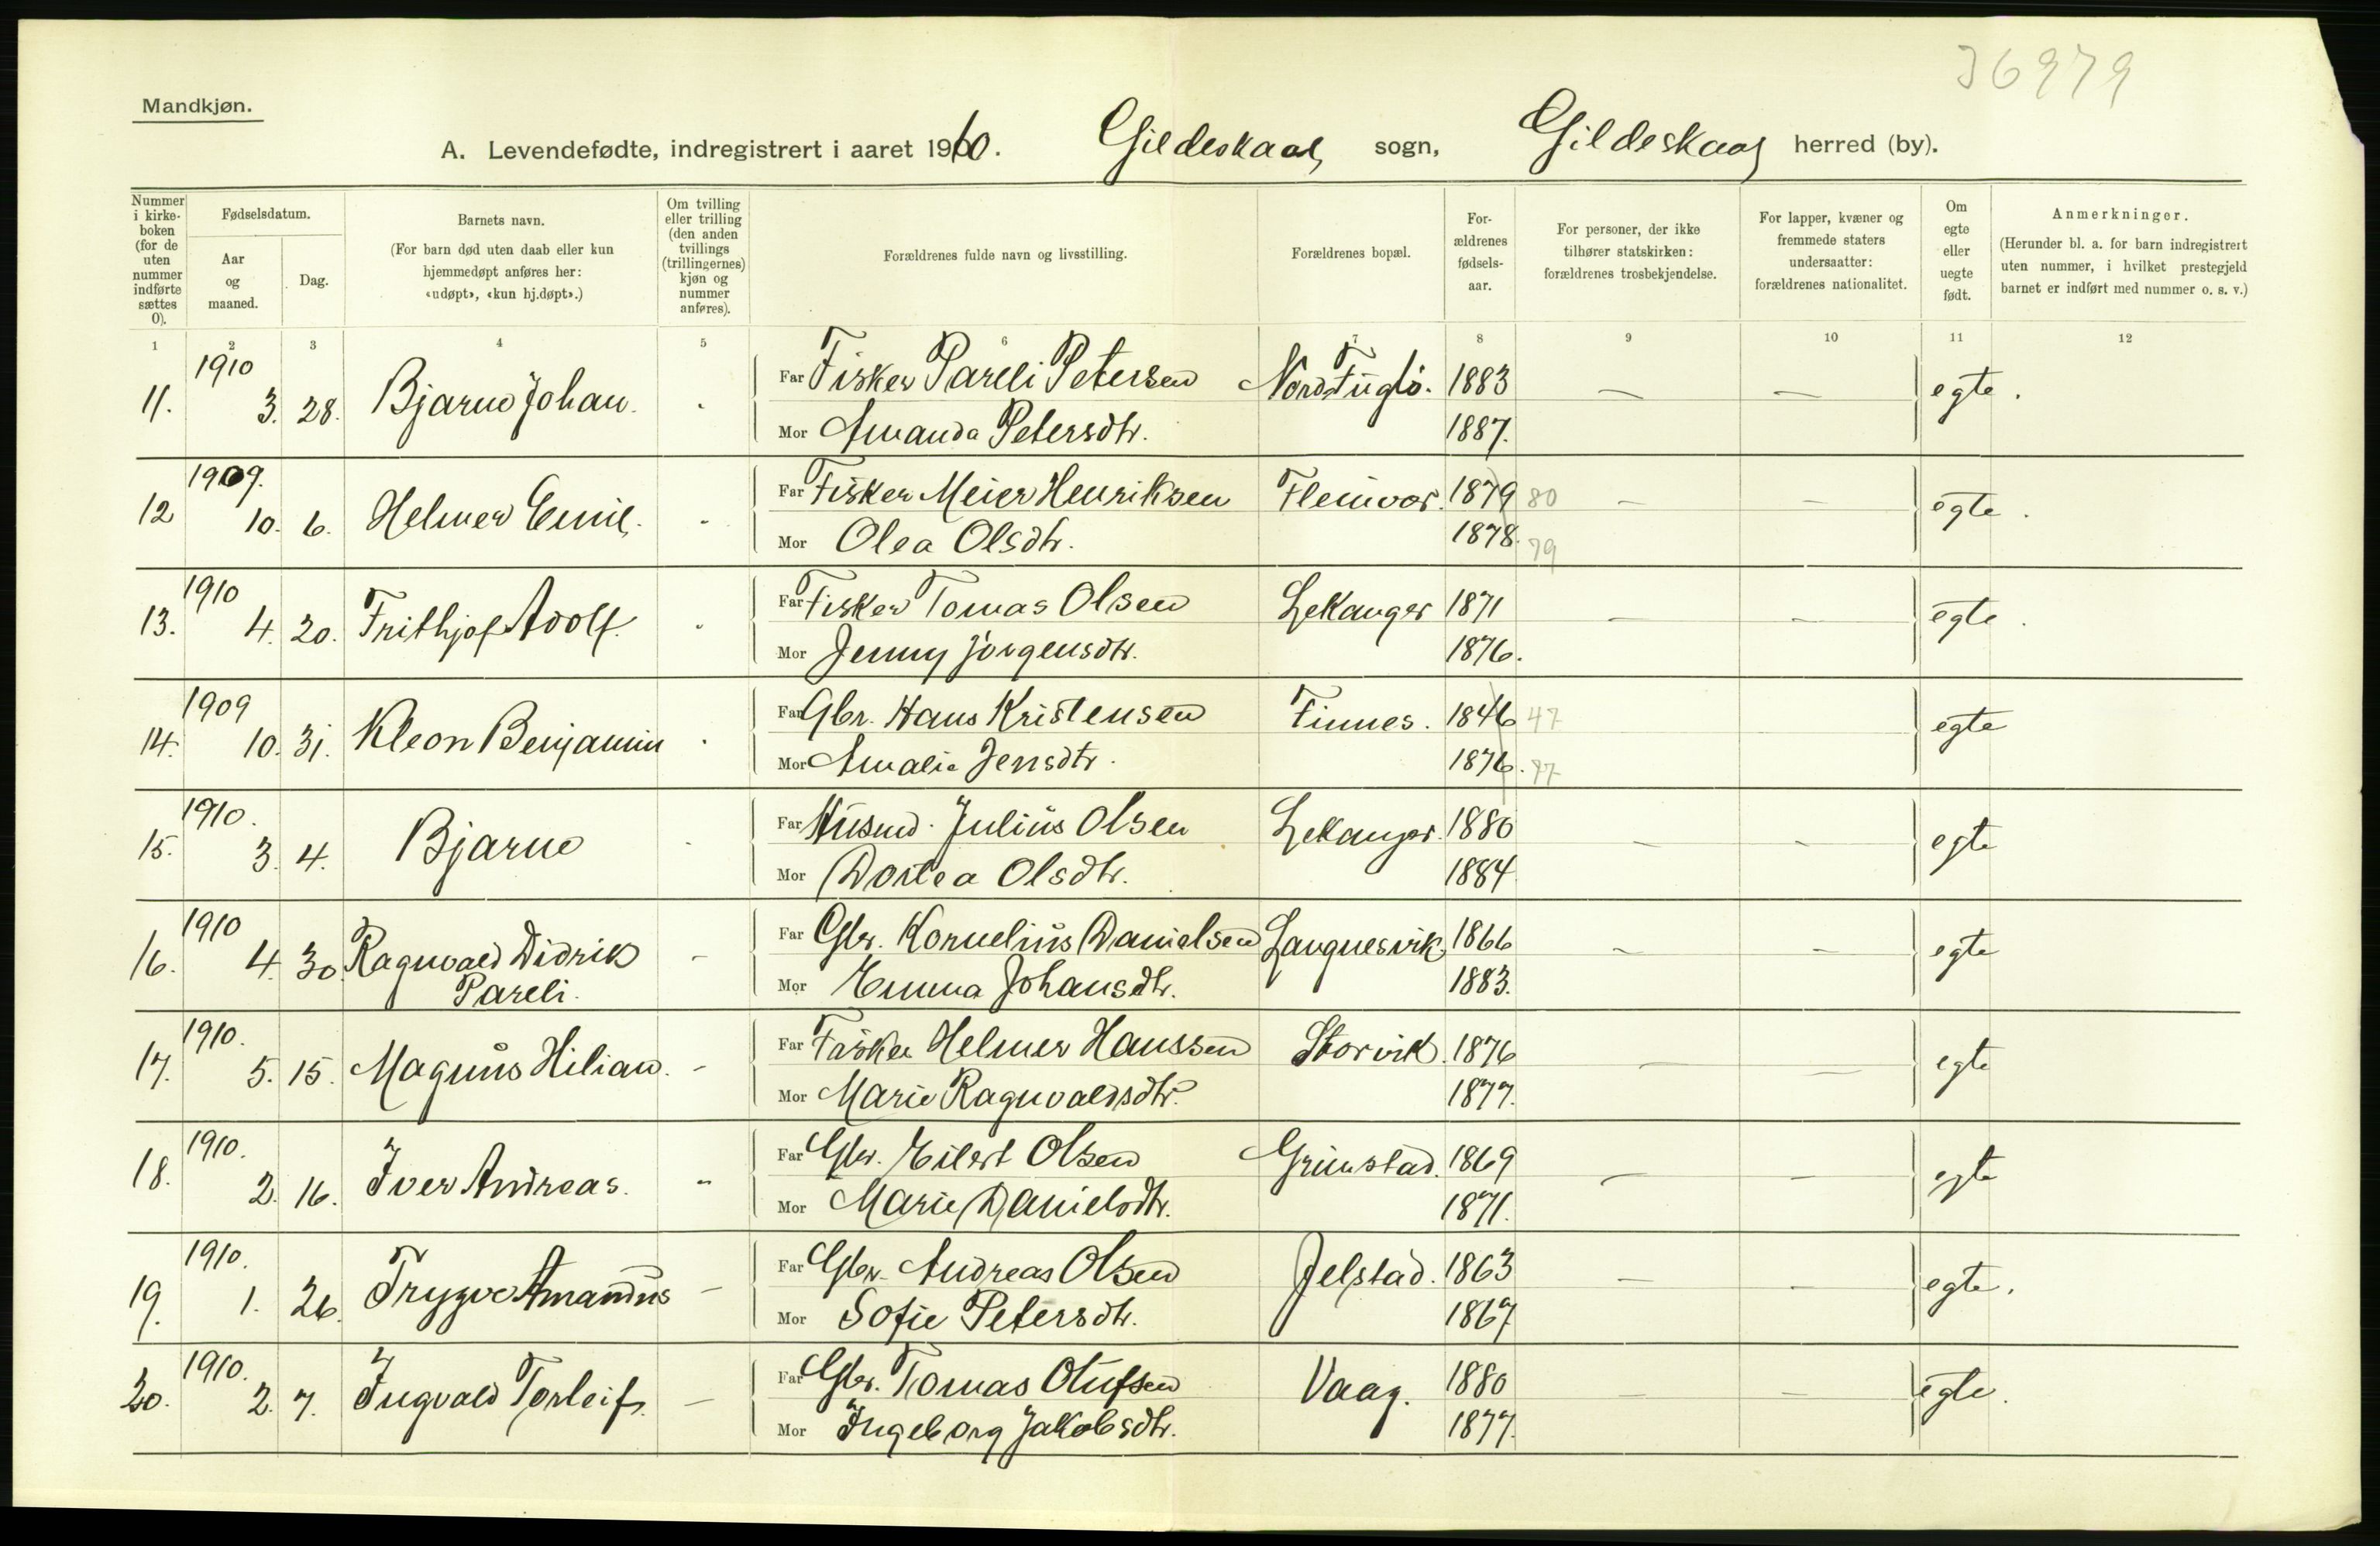 36979
Mandkjøn.
A. Levendefødte, indregistrert i aaret 1910. Gildeskaal sogn, Gildeskaal herred (by).
Nummer i kirke-boken (for de uten nummer indførte sættes 0).
Fødselsdatum.
Aar og maaned.
Dag.
Barnets navn.
(For barn død uten daab eller kun hjemmedøpt anføres her: «udøpt», «kun hj.døpt».)
Om tvilling eller trilling (den anden tvillings (trillingernes) kjøn og nummer anføres).
Forældrenes fulde navn og livsstilling.
Forældrenes bopæl.
For-ældrenes fødsels-aar.
For personer, der ikke tilhører statskirken: forældrenes trosbekjendelse.
For lapper, kvæner og fremmede staters undersaatter: forældrenes nationalitet.
Om egte eller uegte født.
Anmerkninger.
(Herunder bl. a. for barn indregistrert uten nummer, i hvilket prestegjeld barnet er indført med nummer o. s. v.)
1 2 3 4 5 6 7 8 9 10 11 12
11. 1910 3. 28. Bjarne Johan. Far Fisker Pareli Petersen Nord Fuglø. 1883 — — egte.
Mor Amanda Petersdtr. 1887.
12 1909. 10. 6. Helmer Emil. Far Fisker Meier Henriksen Fleinvær. 1879 80 — — egte.
Mor Olea Olsdtr. 1878. 79
13. 1910 4. 20. Frithjof Adolf. Far Fisker Tomas Olsen Lekanger 1871 — — egte.
Mor Jenny Jörgensdtr. 1876.
14. 1909 10. 31. Kleon Benjamin Far Gbr. Hans Kristensen Finnes. 1846 47 egte
Mor Amalie Jensdtr. 1876. 77
15. 1910. 3. 4. Bjarne Far Husmd. Julius Olsen Lekanger. 1880 — — egte
Mor Dortea Olsdtr. 1884
16. 1910 4. 30. Ragnvald Didrik Pareli. - Far Gbr. Kornelius Danielsen Laugnesvik. 1866 — — egte
Mor Emma Johansdtr. 1883.
17. 1910. 5. 15. Magnus Hilian. - Far Fisker Helmer Hanssen Storvik. 1876 — — egte
Mor Marie Ragnvaldsdtr. 1877.
18. 1910. 2. 16. Iver Andreas. - Far Gbr. Eilert Olsen Grimstad. 1869 — — egte
Mor Marie Danielsdtr. 1871.
19. 1910. 1. 26. Trygve Amandus - Far Gbr. Andreas Olsen Jelstad. 1863 — — egte.
Mor Sofie Petersdtr. 1867
20. 1910. 2. 7. Ingvald Torleif. - Far Gbr. Tomas Olufsen Vaag. 1880 — — egte.
Mor Ingeborg Jakobsdtr. 1877.